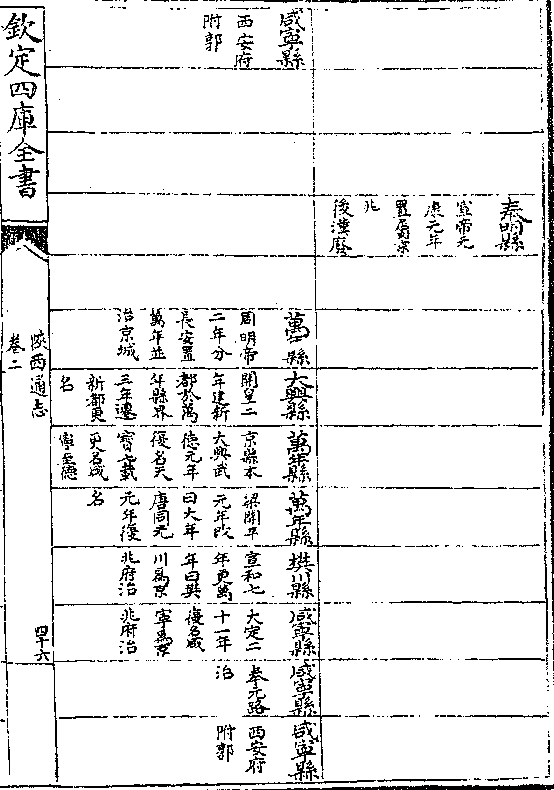 奉明縣
宣帝元
康元年
置屬京
兆
後漢廢
咸寧縣
西安府
附郭
萬年縣
周明帝
二年分
長安置
萬年並
治京城
大興縣
開皇二
年建新
都於萬
年縣界
三年遷
新都更
名
萬年縣
京縣本
大興武
德元年
復名天
寶七載
更名咸
寧至德
萬年縣
梁開平
元年改
曰大年
唐同光
元年復
名
樊川縣
宣和七
年更萬
年曰樊
川為京
兆府治
咸寧縣
大定二
十一年
復名咸
寧為京
兆府治
咸寧縣
奉元路
治
咸寧縣
西安府
附郭
欽定四庫全書
陜西通志
卷二
四十六